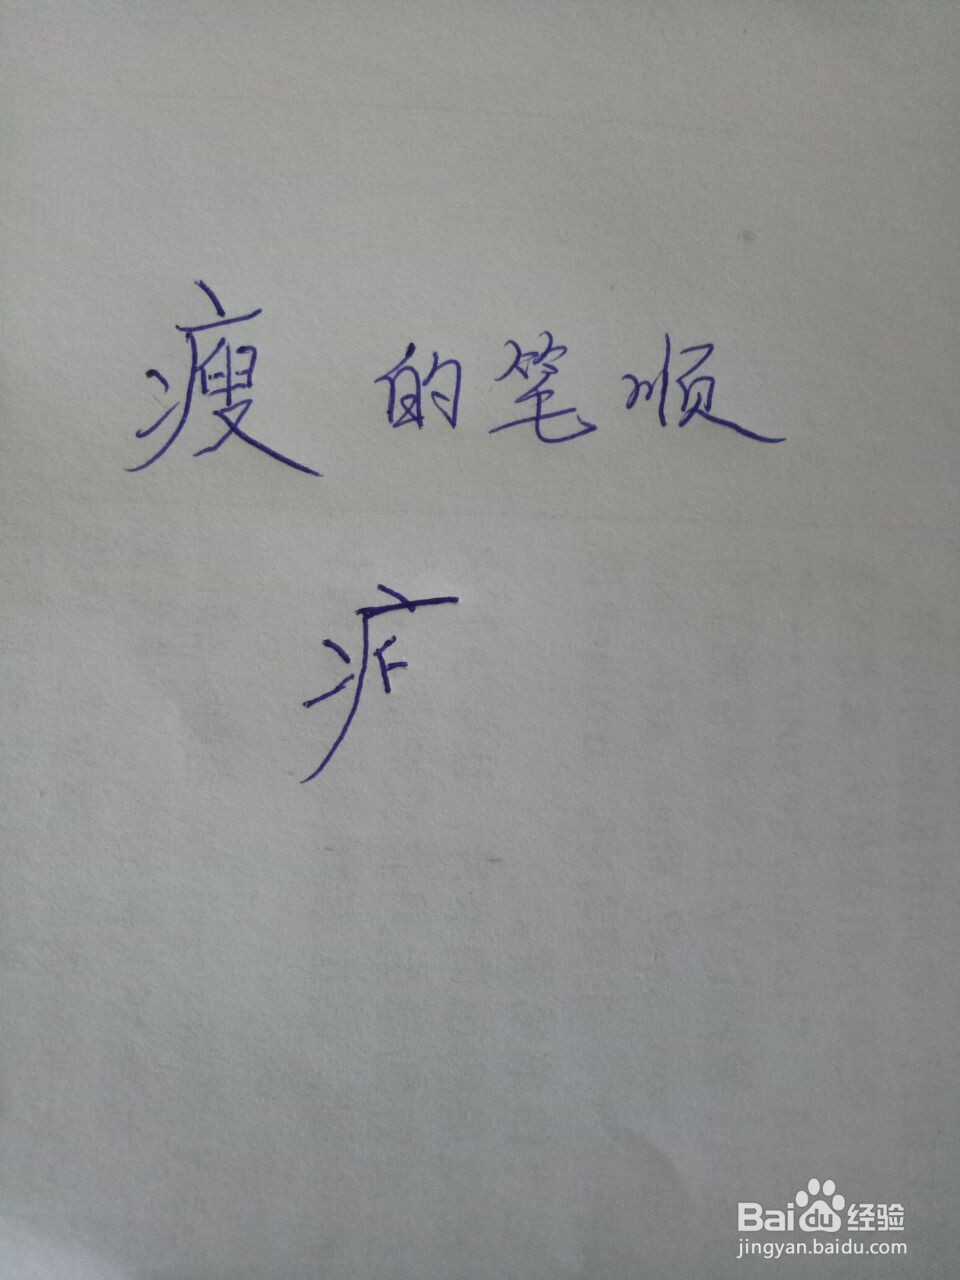 瘦的笔顺
Baidu经验
jingyan.baidu.com